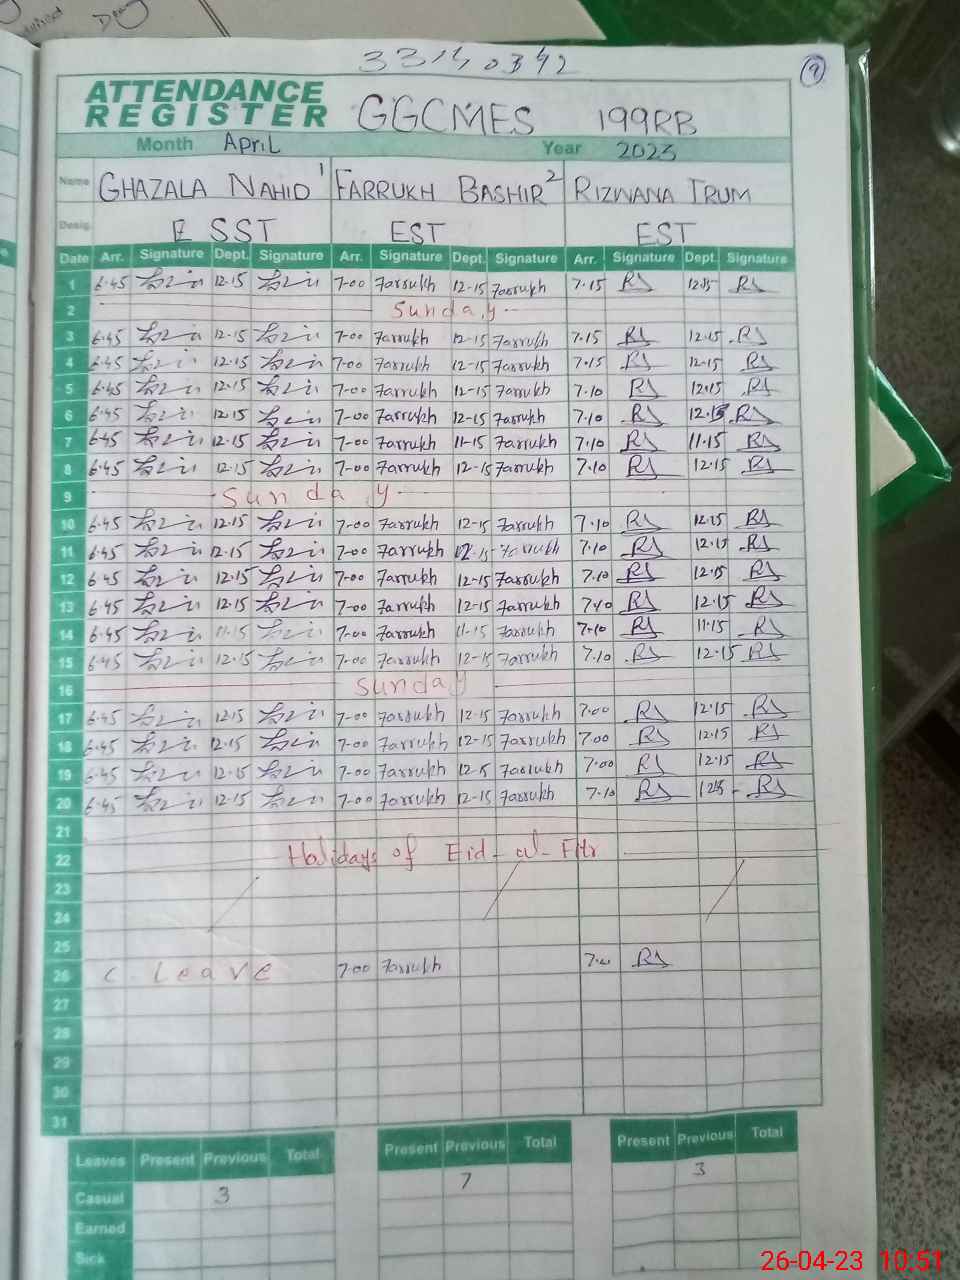 33140392
9
ATTENDANCE REGISTER GGCMES 199RB
Month April Year 2023
Name GHAZALA NAHID 1 FARRUKH BASHIR 2 RIZWANA IRUM
Desig. SST EST EST
Date Arr. Signature Dept. Signature Arr. Signature Dept. Signature Arr. Signature Dept. Signature
1 6.45 12.15 7-00 Farrukh 12-15 Farrukh 7.15 RS 12.15 RS
2 Sunday
3 6.45 12.15 7-00 Farrukh 12-15 Farrukh 7.15 RS 12.15 RS
4 6.45 12.15 7-00 Farrukh 12-15 Farrukh 7.15 RS 12.15 RS
5 6.45 12.15 7-00 Farrukh 12-15 Farrukh 7.10 RS 12.15 RS
6 6.45 12.15 7-00 Farrukh 12-15 Farrukh 7.10 RS 12.15 RS
7 6.45 12.15 7-00 Farrukh 11-15 Farrukh 7.10 RS 11.15 RS
8 6.45 12.15 7-00 Farrukh 12-15 Farrukh 7.10 RS 12.15 RS
9 Sunday
10 6.45 12.15 7-00 Farrukh 12-15 Farrukh 7.10 RS 12.15 RS
11 6.45 12.15 7-00 Farrukh 12-15 Farrukh 7.10 RS 12.15 RS
12 6.45 12.15 7-00 Farrukh 12-15 Farrukh 7.10 RS 12.15 RS
13 6.45 12.15 7-00 Farrukh 12-15 Farrukh 7.10 RS 12.15 RS
14 6.45 11.15 7-00 Farrukh 11-15 Farrukh 7.10 RS 11.15 RS
15 6.45 12.15 7-00 Farrukh 12-15 Farrukh 7.10 RS 12.15 RS
16 Sunday
17 6.45 12.15 7-00 Farrukh 12-15 Farrukh 7.00 RS 12.15 RS
18 6.45 12.15 7-00 Farrukh 12-15 Farrukh 7.00 RS 12.15 RS
19 6.45 12.15 7-00 Farrukh 12-15 Farrukh 7.00 RS 12.15 RS
20 6.45 12.15 7-00 Farrukh 12-15 Farrukh 7.10 RS RS
21
22 Holidays of Eid-ul-Fitr
23
24
25
26 C. Leave 7.00 Farrukh RS
27
28
29
30
31
Leaves Present Previous Total Present Previous Total Present Previous Total
Casual 3 7 3
Earned
Sick
26-04-23 10:51